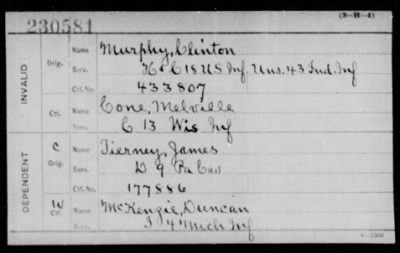 (3-H-4)
230581
INVALID
Orig. Name Murphy, Clinton
Serv. H & C 18 US Inf. Uns. 43 Ind. Inf
Ctf. No. 433807
Ctf. Name Cone, Melville
Serv. C 13 Wis Inf
DEPENDENT
C Orig. Name Tierney, James
Serv. D 9 Pa Cav
Ctf. No. 177886
W Ctf. Name McKenzie, Duncan
I 4 Mich Inf